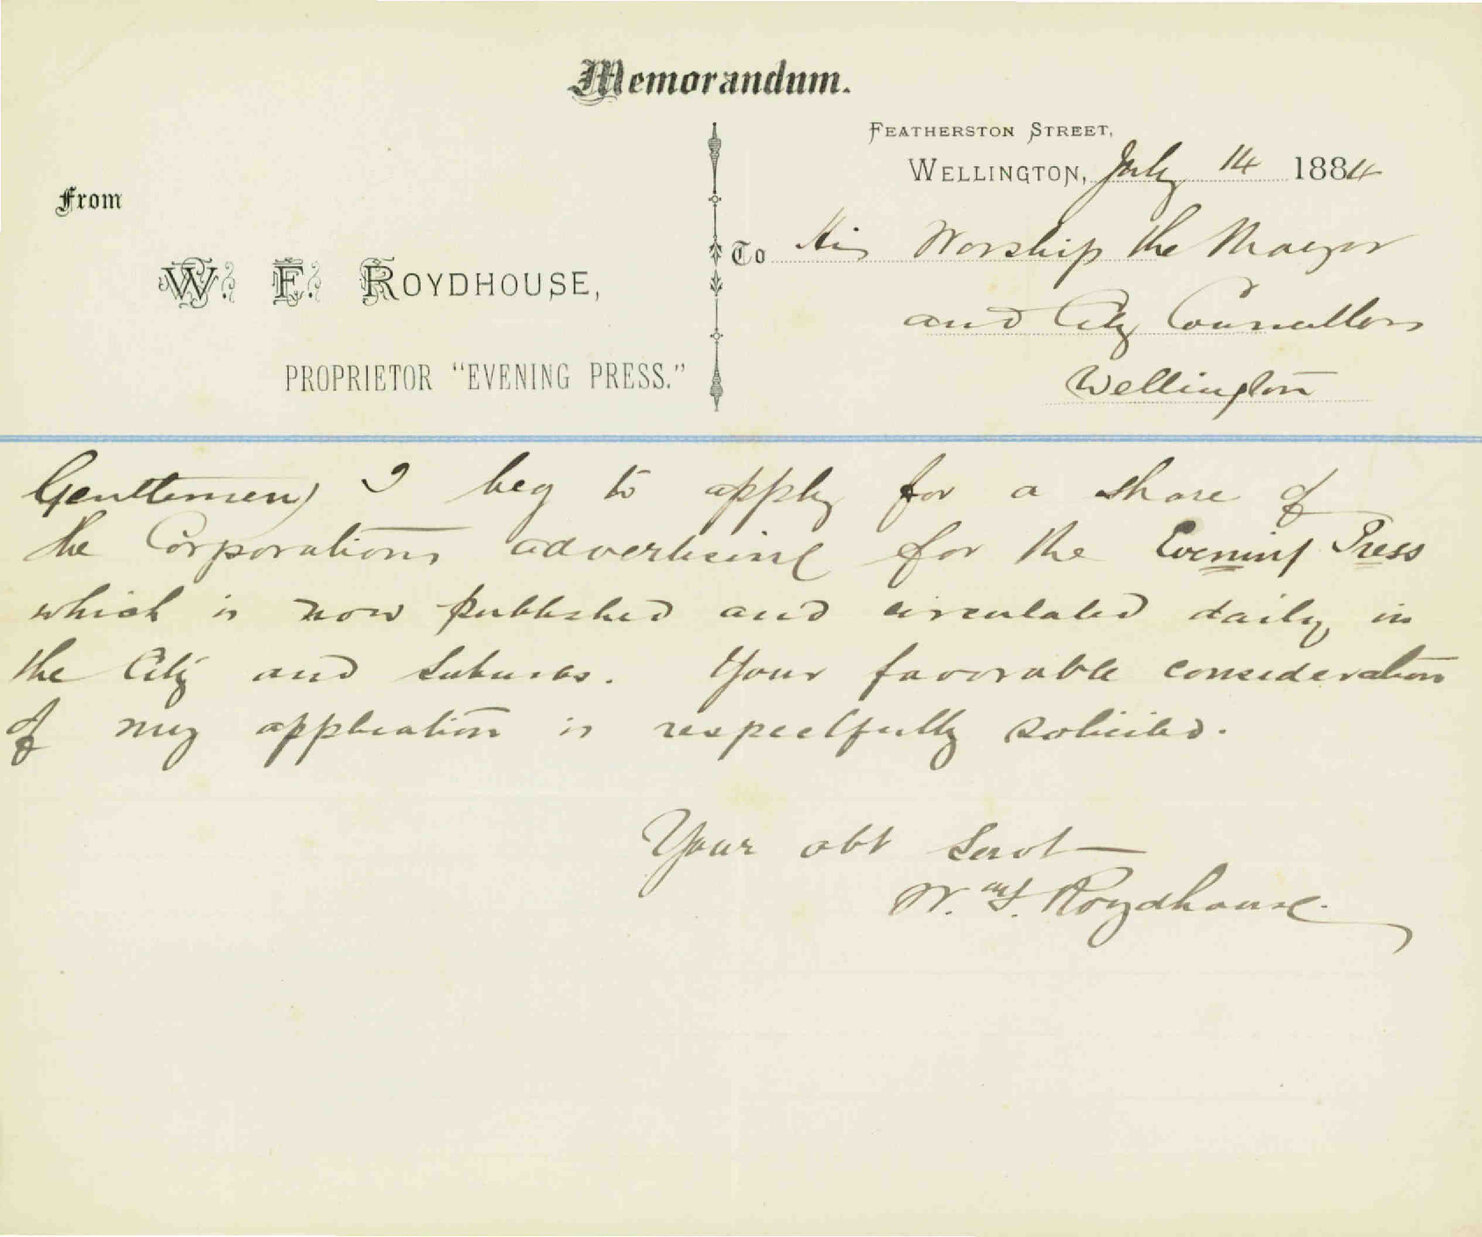 Memorandum.
Featherston Street,
Wellington, July 14 1884
From
W. F. Roydhouse,
Proprietor "Evening Press."
To His Worship the Mayor
and City Councillors
Wellington
Gentlemen, I beg to apply for a share of
the Corporations advertising for the Evening Press
which is now published and circulated daily in
the City and suburbs. Your favorable consideration
of my application is respectfully solicited.
Your obt Servt
Wm F. Roydhouse.